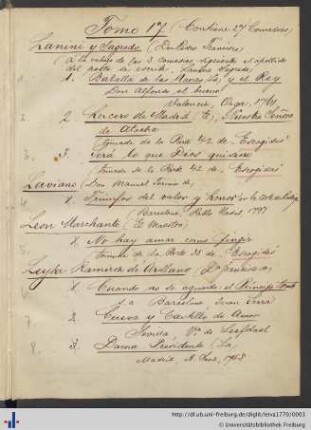 Tomo 17 (Contiene 27 Comedias)
Lanini y Sagredo (Don Pedro Francisco)
(A la cabeza de las 3 Comedias, siguiente el apellido
del poeta se escribe: Lanine Sagredo,
1. Batalla de las Navas (La) y el Rey
Don Alfonso el bueno
Valencia, Orga, 1761
2. Lucero de Madrid (El), Nuestra Señora
de Atocha
Tomada de la Parte 42 de "Escogidas"
3. Será lo que Dios quisiere
Tomada de la Parte 42 de "Escogidas"
Laviano Don Manuel Fermin de
1. Triunfos del valor y honor en la corte de Rodrigo
Barcelona, Pablo Nadal, 1797
Leon Marchante (El Maestro)
1. No hay amar como fingir
Tomada de la Parte 33 de "Escogidas"
Leyba Ramirez de Arellano D. Francisco
1. Cuando no se aguarda, el Principe tonto
s.a Barcelona Juan Serra
2. Cueva y Castillo de Amor
Sevilla Va. de Leefdael
3. Dama Presidente (La)
Madrid A. Sanz, 1748
http://dl.ub.uni-freiburg.de/diglit/leiva1770/0003
© Universitätsbibliothek Freiburg